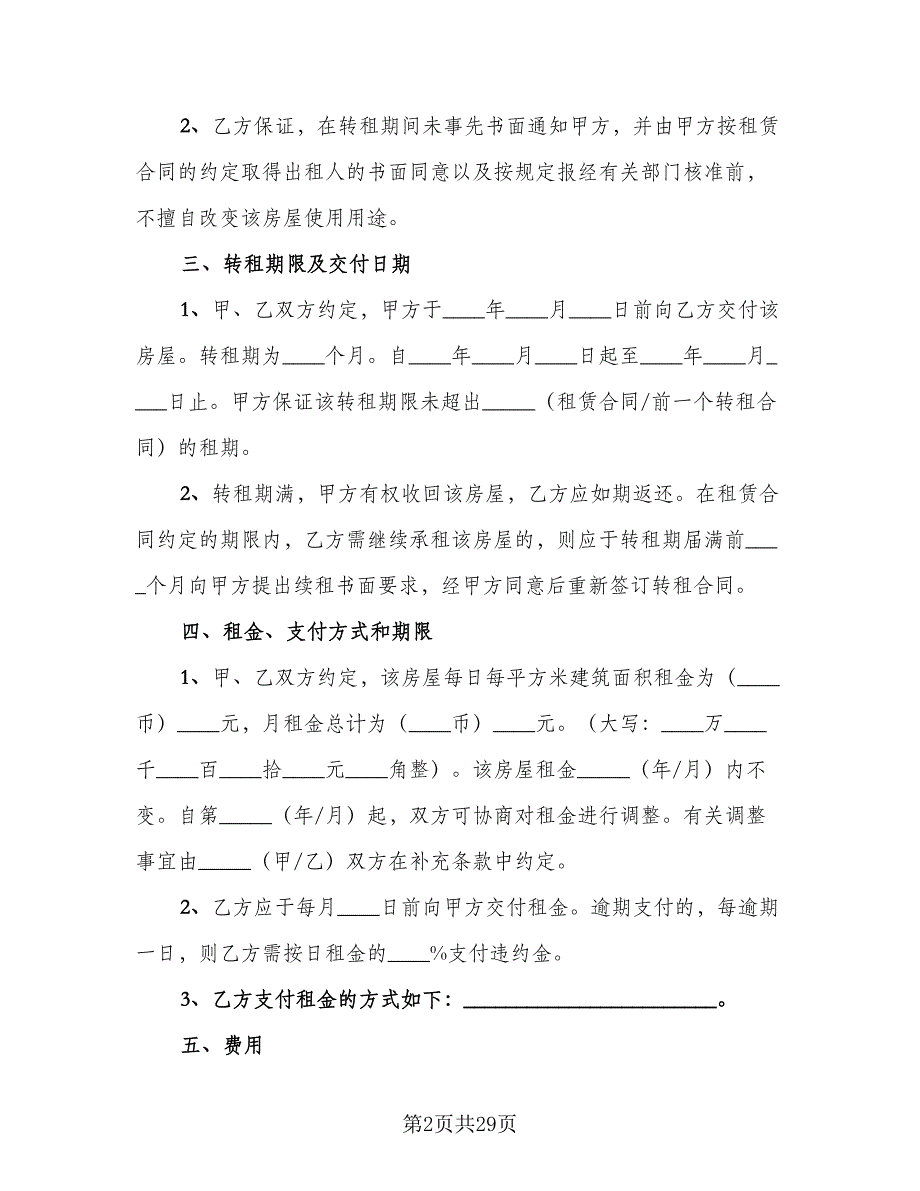 2、乙方保证，在转租期间未事先书面通知甲方，并由甲方按租赁
合同的约定取得出租人的书面同意以及按规定报经有关部门核准前，
不擅自改变该房屋使用用途。
三、转租期限及交付日期
1、甲、乙双方约定，甲方于____年____月____日前向乙方交付该
房屋。转租期为____个月。自____年____月____日起至____年____月_
___日止。甲方保证该转租期限未超出_____（租赁合同/前一个转租合
同）的租期。
2、转租期满，甲方有权收回该房屋，乙方应如期返还。在租赁合
同约定的期限内，乙方需继续承租该房屋的，则应于转租期届满前___
_个月向甲方提出续租书面要求，经甲方同意后重新签订转租合同。
四、租金、支付方式和期限
1、甲、乙双方约定，该房屋每日每平方米建筑面积租金为（____
币）____元，月租金总计为（____币）____元。（大写：____万____
千____百____拾____元____角整）。该房屋租金_____（年/月）内不
变。自第_____（年/月）起，双方可协商对租金进行调整。有关调整
事宜由_____（甲/乙）双方在补充条款中约定。
2、乙方应于每月____日前向甲方交付租金。逾期支付的，每逾期
一日，则乙方需按日租金的____%支付违约金。
3、乙方支付租金的方式如下：________________________。
五、费用
第2页共29页